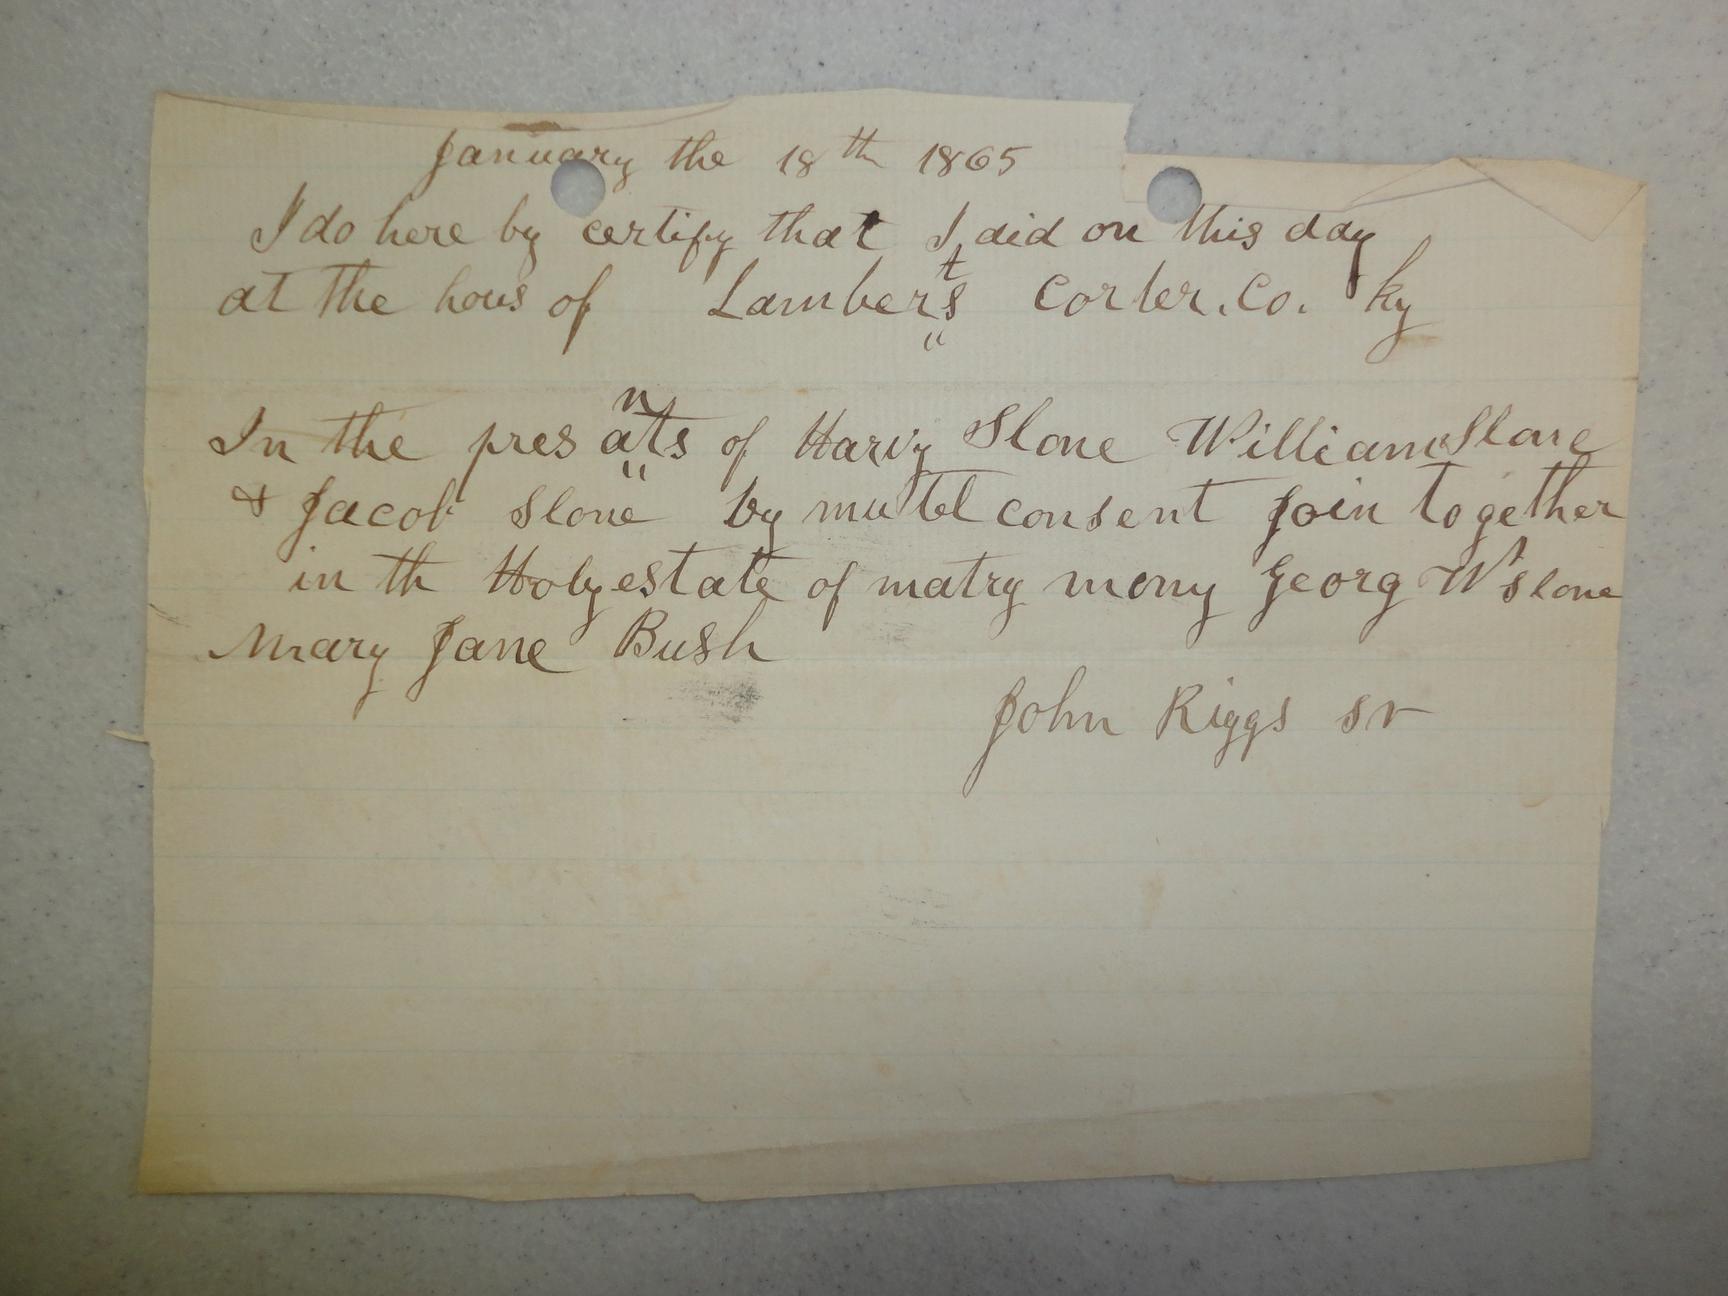 January the 18th 1865
I do here by certify that I did on this day
at the hous of Lamberts Corter. Co. ky
In the pres ants of Harvy Slone William Slone
& Jacob Slone by mutel consent Join together
in th Holy estate of matry mony Georg W Slone
Mary Jane Bush
John Riggs sr